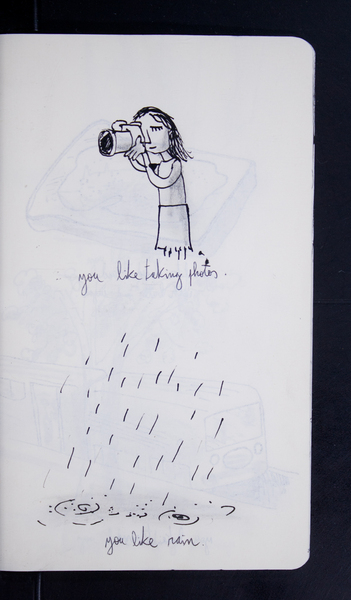 you like taking photos.
you like rain.